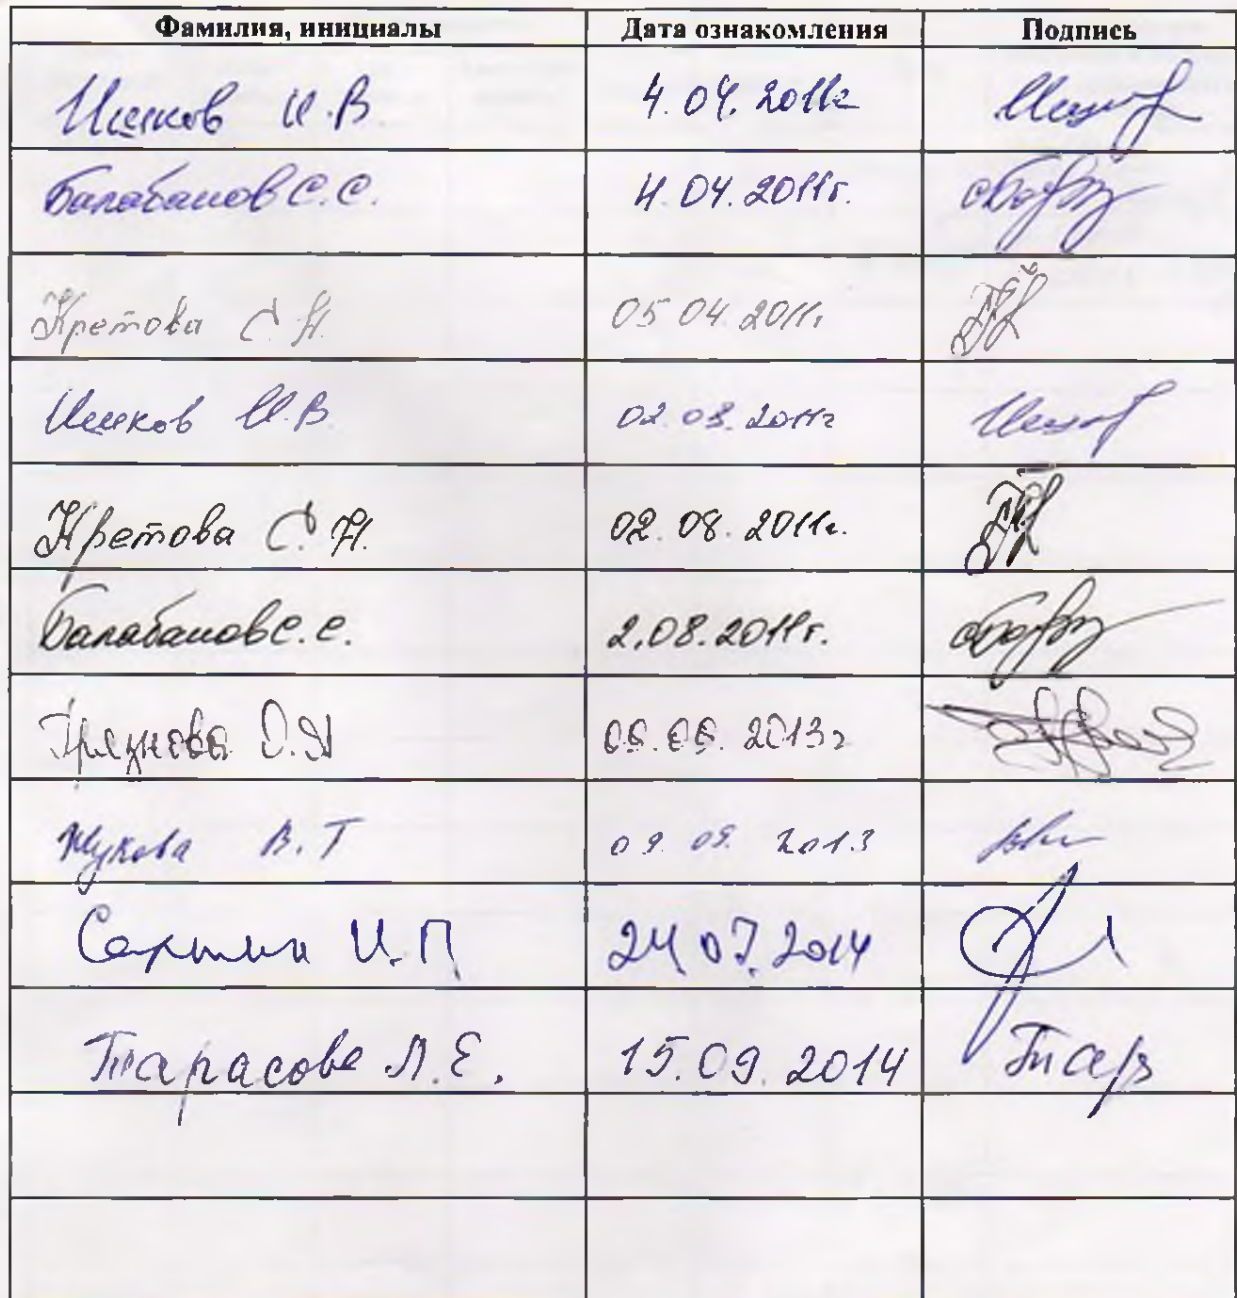 Фамилия, инициалы Дата ознакомления Подпись
Ишков И.В. 4.04.2011г
Балабанов С.С. 4.04.2011г.
Кретова С.Н. 05.04.2011г
Ишков И.В. 02.08.2011г
Кретова С.Н. 02.08.2011г.
Балабанов С.С. 2.08.2011г.
Грязнова О.А 06.06.2013г
Жукова В.Т 09.09.2013
И.П. 24.07.2014
Тарасова Л.Е. 15.09.2014